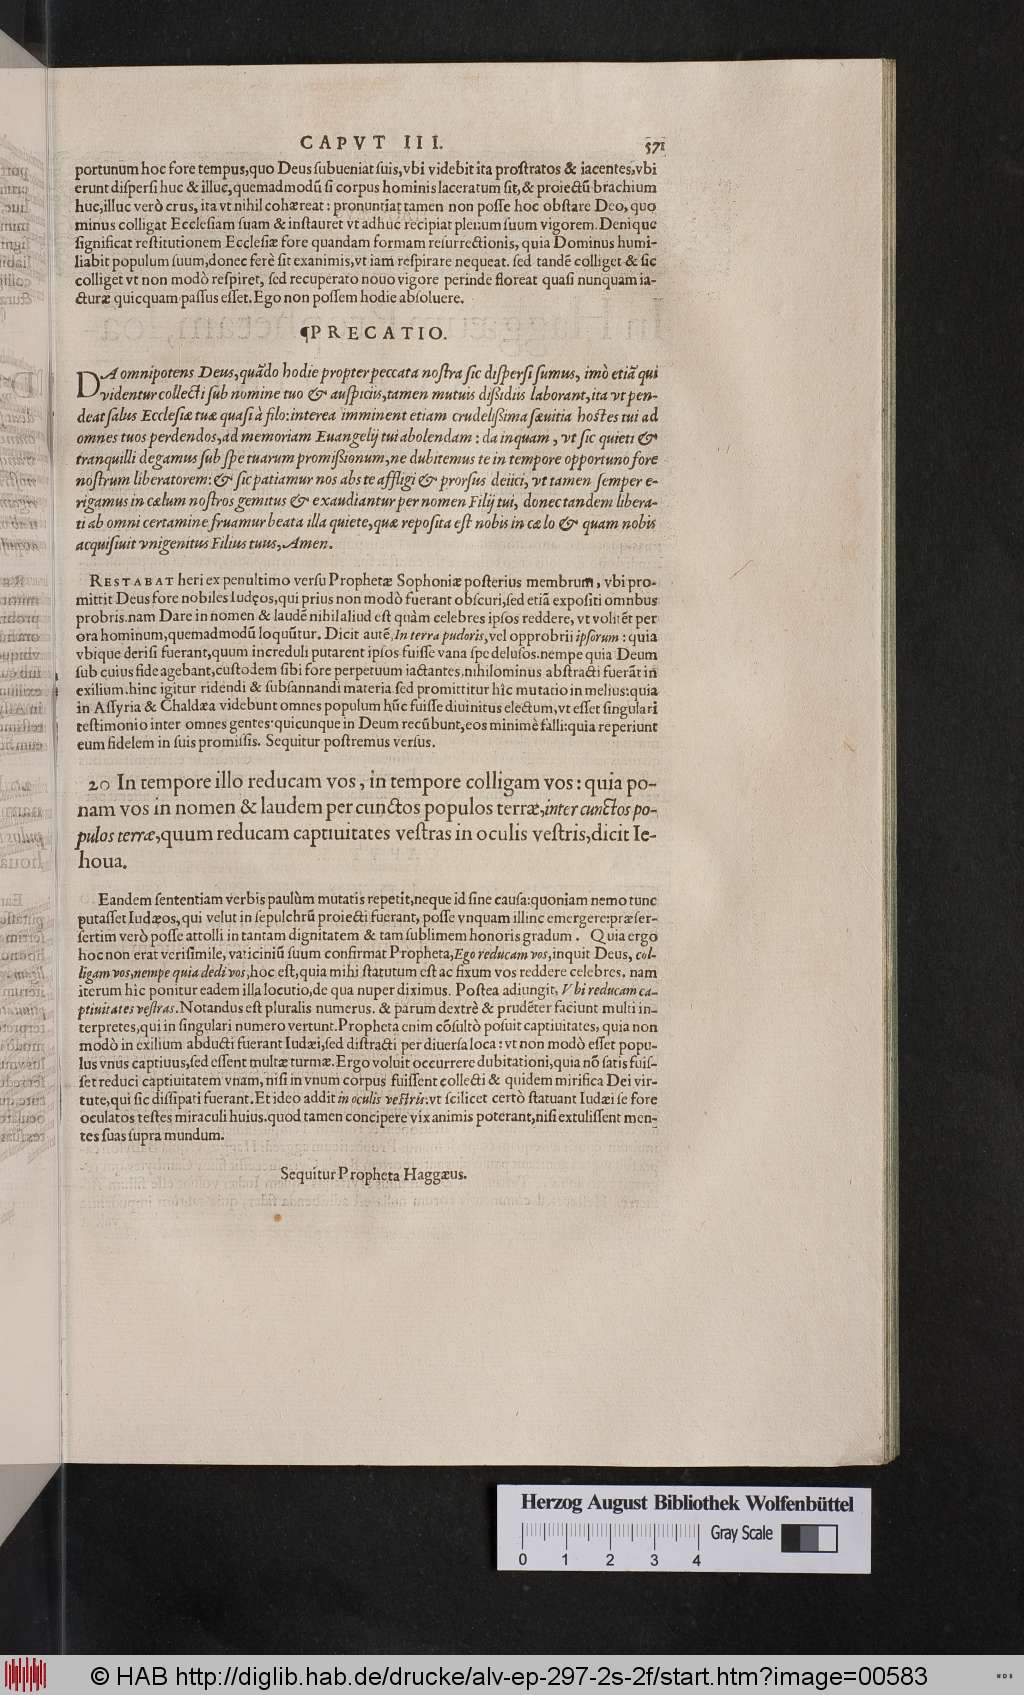 CAPVT III. 571
portunum hoc fore tempus, quo Deus ſubueniat ſuis, vbi videbit ita proſtratos & iacentes, vbi
erunt diſperſi huc & illuc, quemadmodū ſi corpus hominis laceratum ſit, & proiectū brachium
huc, illuc verò crus, ita vt nihil cohæreat: pronuntiat tamen non poſſe hoc obſtare Deo, quo
minus colligat Eccleſiam ſuam & inſtauret vt adhuc recipiat plenum ſuum vigorem. Denique
ſignificat reſtitutionem Eccleſiæ fore quandam formam reſurrectionis, quia Dominus humi-
liabit populum ſuum, donec ferè ſit exanimis, vt iam reſpirare nequeat. ſed tandē colliget & ſic
colliget vt non modò reſpiret, ſed recuperato nouo vigore perinde floreat quaſi nunquam ia-
cturæ quicquam paſſus eſſet. Ego non poſſem hodie abſoluere.
¶PRECATIO.
DA omnipotens Deus, quādo hodie propter peccata noſtra ſic diſperſi ſumus, imò etiā qui
videntur collecti ſub nomine tuo & auſpiciis, tamen mutuis diſsidiis laborant, ita vt pen-
deat ſalus Eccleſiæ tuæ quaſi à filo: interea imminent etiam crudeliſsima ſæuitia hoſtes tui ad
omnes tuos perdendos, ad memoriam Euangelij tui abolendam: da inquam, vt ſic quieti &
tranquilli degamus ſub ſpe tuarum promiſsionum, ne dubitemus te in tempore opportuno fore
noſtrum liberatorem: & ſic patiamur nos abs te affligi & prorſus deiici, vt tamen ſemper e-
rigamus in cælum noſtros gemitus & exaudiantur per nomen Filij tui, donec tandem libera-
ti ab omni certamine fruamur beata illa quiete, quæ repoſita eſt nobis in cælo & quam nobis
acquiſiuit vnigenitus Filius tuus, Amen.
RESTABAT heri ex penultimo verſu Prophetæ Sophoniæ poſterius membrum, vbi pro-
mittit Deus fore nobiles Iudęos, qui prius non modò fuerant obſcuri, ſed etiā expoſiti omnbus
probris. nam Dare in nomen & laudē nihil aliud eſt quàm celebres ipſos reddere, vt volitēt per
ora hominum, quemadmodū loquūtur. Dicit autē, In terra pudoris, vel opprobrii ipſorum: quia
vbique deriſi fuerant, quum increduli putarent ipſos fuiſſe vana ſpe deluſos. nempe quia Deum
ſub cuius fide agebant, cuſtodem ſibi fore perpetuum iactantes, nihilominus abſtracti fuerāt in
exilium. hinc igitur ridendi & ſubſannandi materia ſed promittitur hîc mutatio in melius: quia
in Aſſyria & Chaldæa videbunt omnes populum hūc fuiſſe diuinitus electum, vt eſſet ſingulari
teſtimonio inter omnes gentes: quicunque in Deum recūbunt, eos minimè falli: quia reperiunt
eum fidelem in ſuis promiſſis. Sequitur poſtremus verſus.
20 In tempore illo reducam vos, in tempore colligam vos: quia po-
nam vos in nomen & laudem per cunctos populos terræ, inter cunctos po-
pulos terræ, quum reducam captiuitates veſtras in oculis veſtris, dicit Ie-
houa.
Eandem ſententiam verbis paulùm mutatis repetit, neque id ſine cauſa: quoniam nemo tunc
putaſſet Iudæos, qui velut in ſepulchrū proiecti fuerant, poſſe vnquam illinc emergere: præſer-
ſertim verò poſſe attolli in tantam dignitatem & tam ſublimem honoris gradum. Quia ergo
hoc non erat veriſimile, vaticiniū ſuum confirmat Propheta, Ego reducam vos, inquit Deus, col-
ligam vos, nempe quia dedi vos, hoc eſt, quia mihi ſtatutum eſt ac fixum vos reddere celebres. nam
iterum hîc ponitur eadem illa locutio, de qua nuper diximus. Poſtea adiungit, Vbi reducam ca-
ptiuitates veſtras. Notandus eſt pluralis numerus. & parum dextrè & prudēter faciunt multi in-
terpretes, qui in ſingulari numero vertunt. Propheta enim cōſultò poſuit captiuitates, quia non
modò in exilium abducti fuerant Iudæi, ſed diſtracti per diuerſa loca: vt non modò eſſet popu-
lus vnus captiuus, ſed eſſent multæ turmæ. Ergo voluit occurrere dubitationi, quia nō ſatis fuiſ-
ſet reduci captiuitatem vnam, niſi in vnum corpus fuiſſent collecti & quidem mirifica Dei vir-
tute, qui ſic diſſipati fuerant. Et ideo addit in oculis veſtris: vt ſcilicet certò ſtatuant Iudæi ſe fore
oculatos teſtes miraculi huius. quod tamen concipere vix animis poterant, niſi extuliſſent men-
tes ſuas ſupra mundum.
Sequitur Propheta Haggæus.
Herzog August Bibliothek Wolfenbüttel
Gray Scale
0 1 2 3 4
© HAB http://diglib.hab.de/drucke/alv-ep-297-2s-2f/start.htm?image=00583